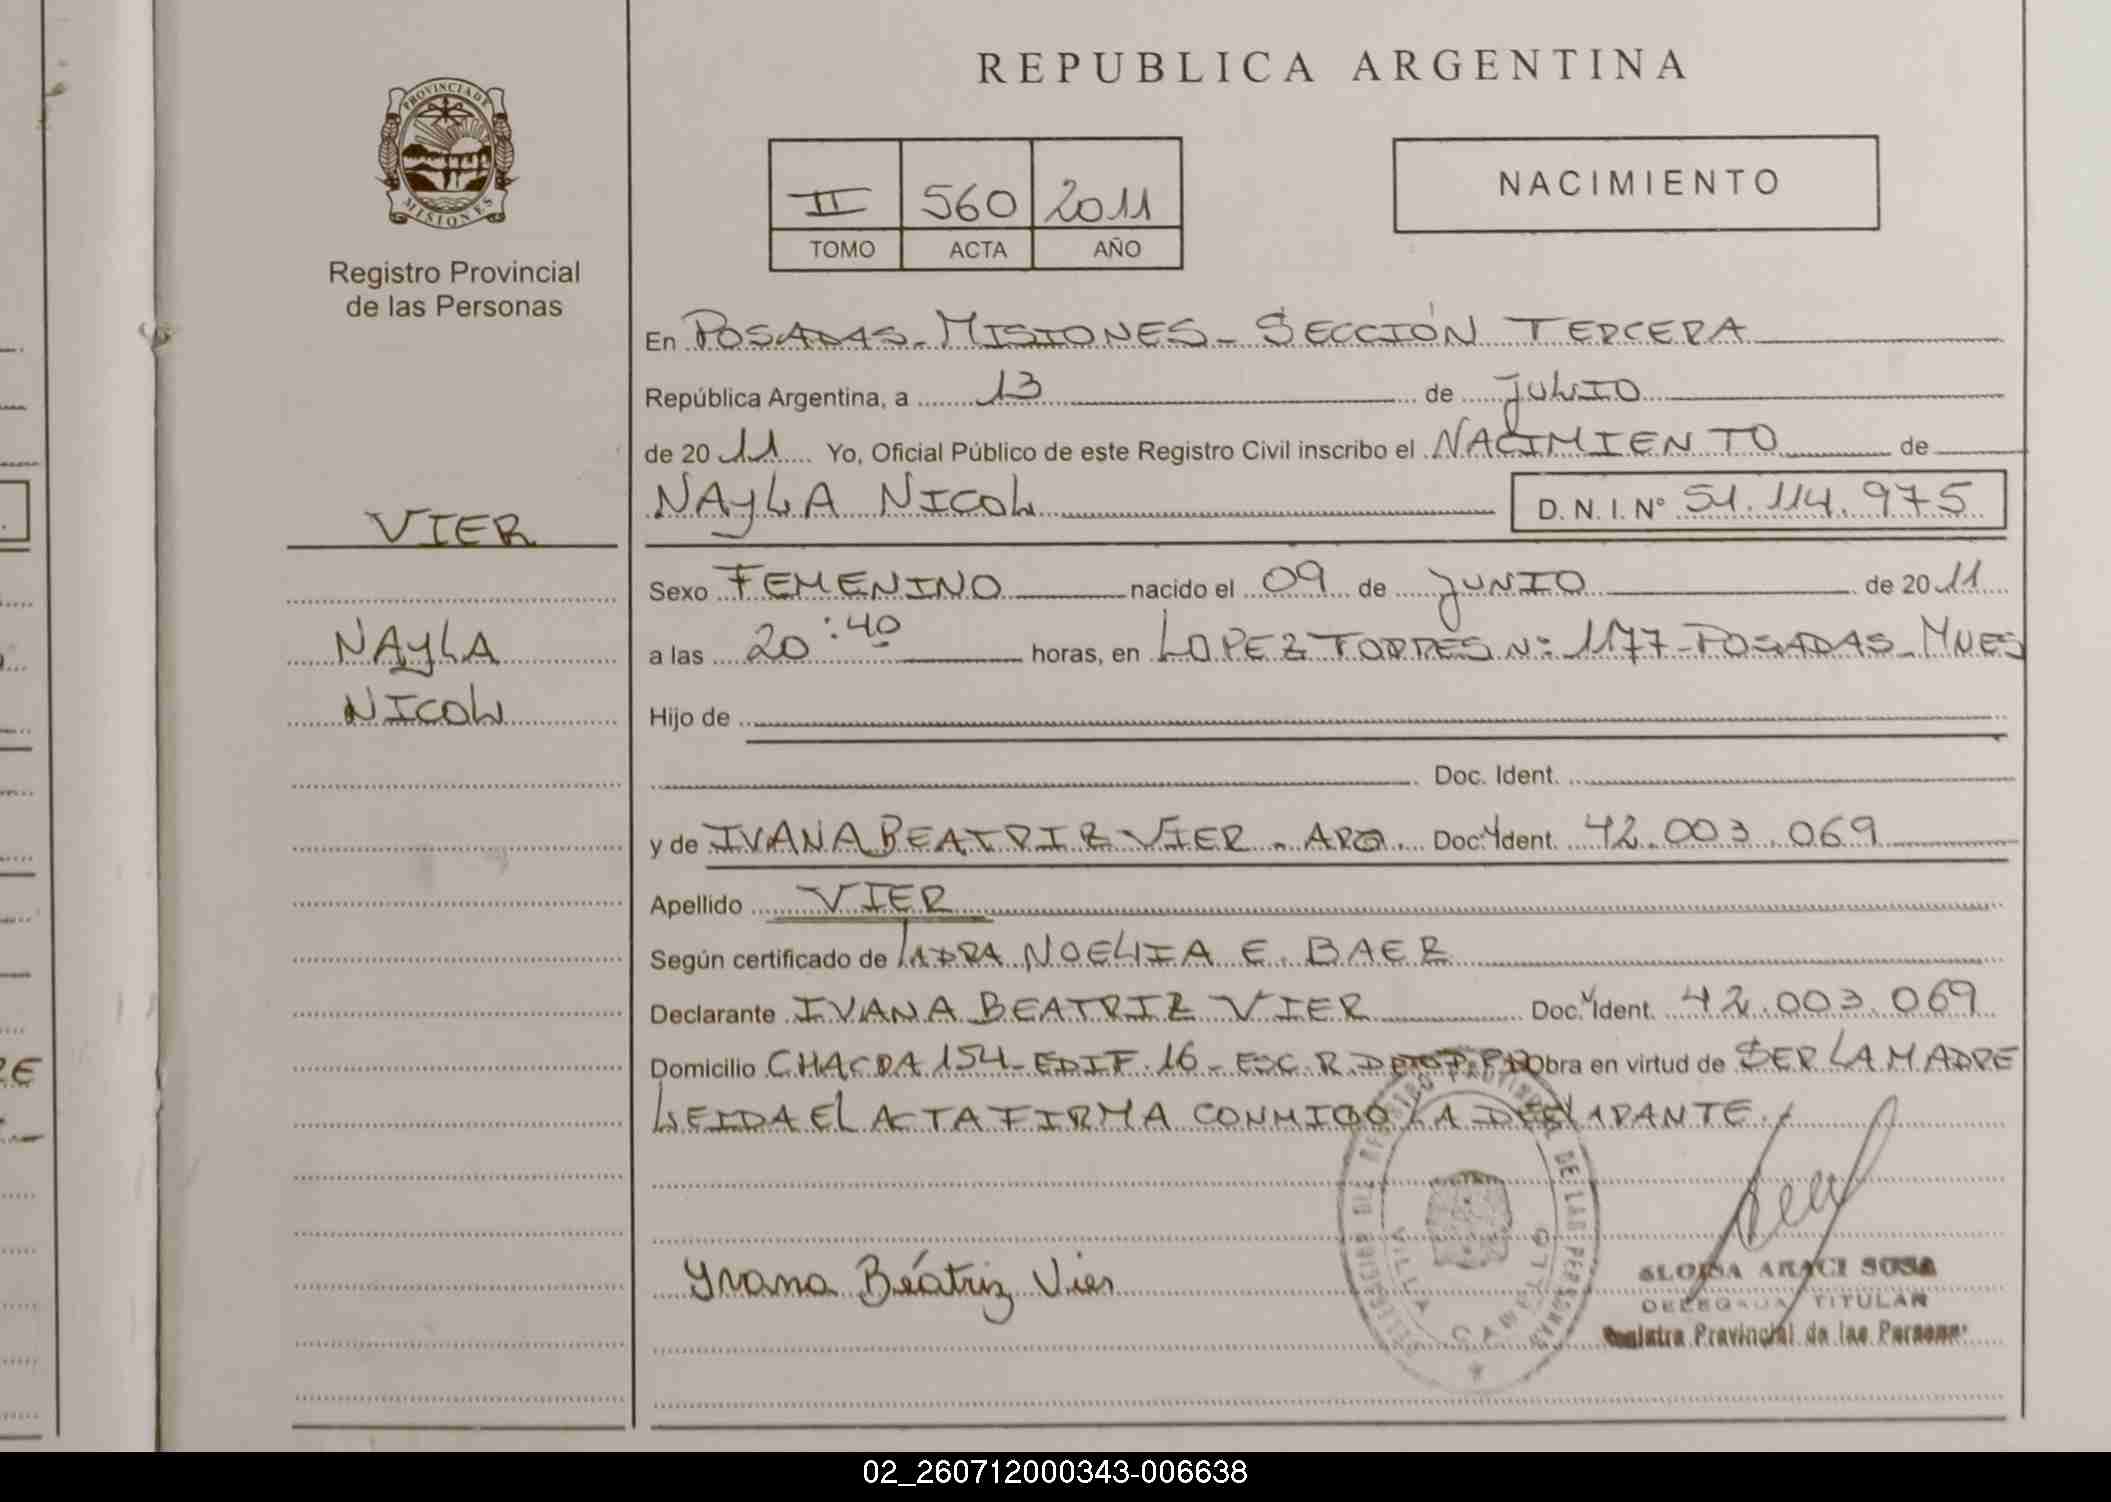 REPUBLICA ARGENTINA
PROVINCIA DE
MISIONES
Registro Provincial
de las Personas
II 560 2011
TOMO ACTA AÑO
NACIMIENTO
En POSADAS - MISIONES - SECCIÓN TERCERA
República Argentina, a 13 de JULIO
de 20 11 Yo, Oficial Público de este Registro Civil inscribo el NACIMIENTO de
NAYLA NICOL D. N. I. N° 51.114.975
VIER
NAYLA
NICOL
Sexo FEMENINO nacido el 09 de JUNIO de 20 11
a las 20:40 horas, en LOPEZ TORRES N: 1177 - POSADAS - MNES
Hijo de
Doc. Ident.
y de IVANA BEATRIZ VIER - ARG. Doc. Ident. 42.003.069
Apellido VIER
Según certificado de NOELIA E. BAEZ
Declarante IVANA BEATRIZ VIER Doc. Ident. 42.003.069
Domicilio CHACRA 154 - EDIF. 16 - ESC. R. Obra en virtud de SER LA MADRE
LEIDA EL ACTA FIRMA CONMIGO LA DECLARANTE.
Yvana Beatriz Vier
DELEGACION DEL REGISTRO PROVINCIAL DE LAS PERSONAS
VILLA CABELLO
ARACI SOSA
DELEGADA TITULAR
Registro Provincial de las Personas
02_260712000343-006638